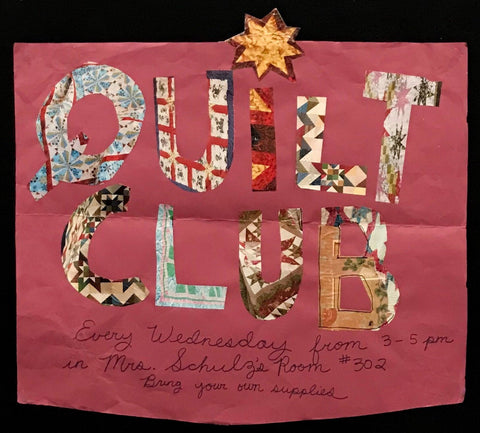 QUiLT
CLUB
Every Wednesday from 3-5 pm
in Mrs. Schulz's Room #302
Bring your own supplies